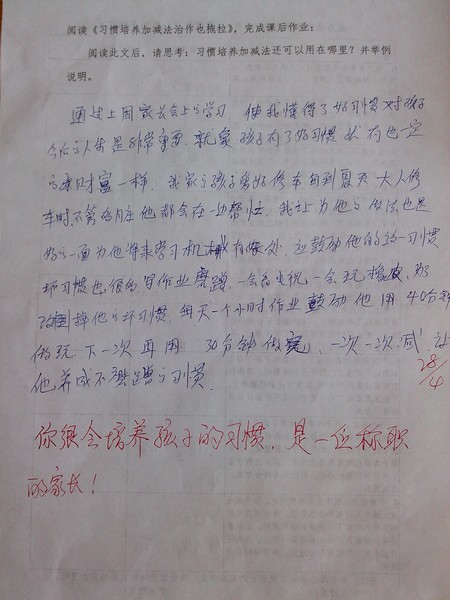 阅读《习惯培养加减法治作也拖拉》，完成课后作业：
阅读此文后，请思考：习惯培养加减法还可以用在哪里？并举例
说明。
通过上周家长会上的学习 使我懂得了好习惯对孩子
今后的人生是非常重要 就象孩子有了好习惯 拥有一定
的财富一样，我家的孩子爱好修车 每到夏天 大人修
车时不管多脏他都会在一边帮忙，我认为他的做法也是
好的一面为他将来学习机械有好处，应鼓励他的这一习惯
坏习惯也很多 写作业磨蹭，一会看电视，一会玩橡皮，为
改掉他的坏习惯，每天一个小时作业 鼓励他用40分钟
做完 下一次再用 30分钟做完，一次一次减，让
他养成不磨蹭的习惯。
28/4
你很会培养孩子的习惯，是一位称职
的家长！